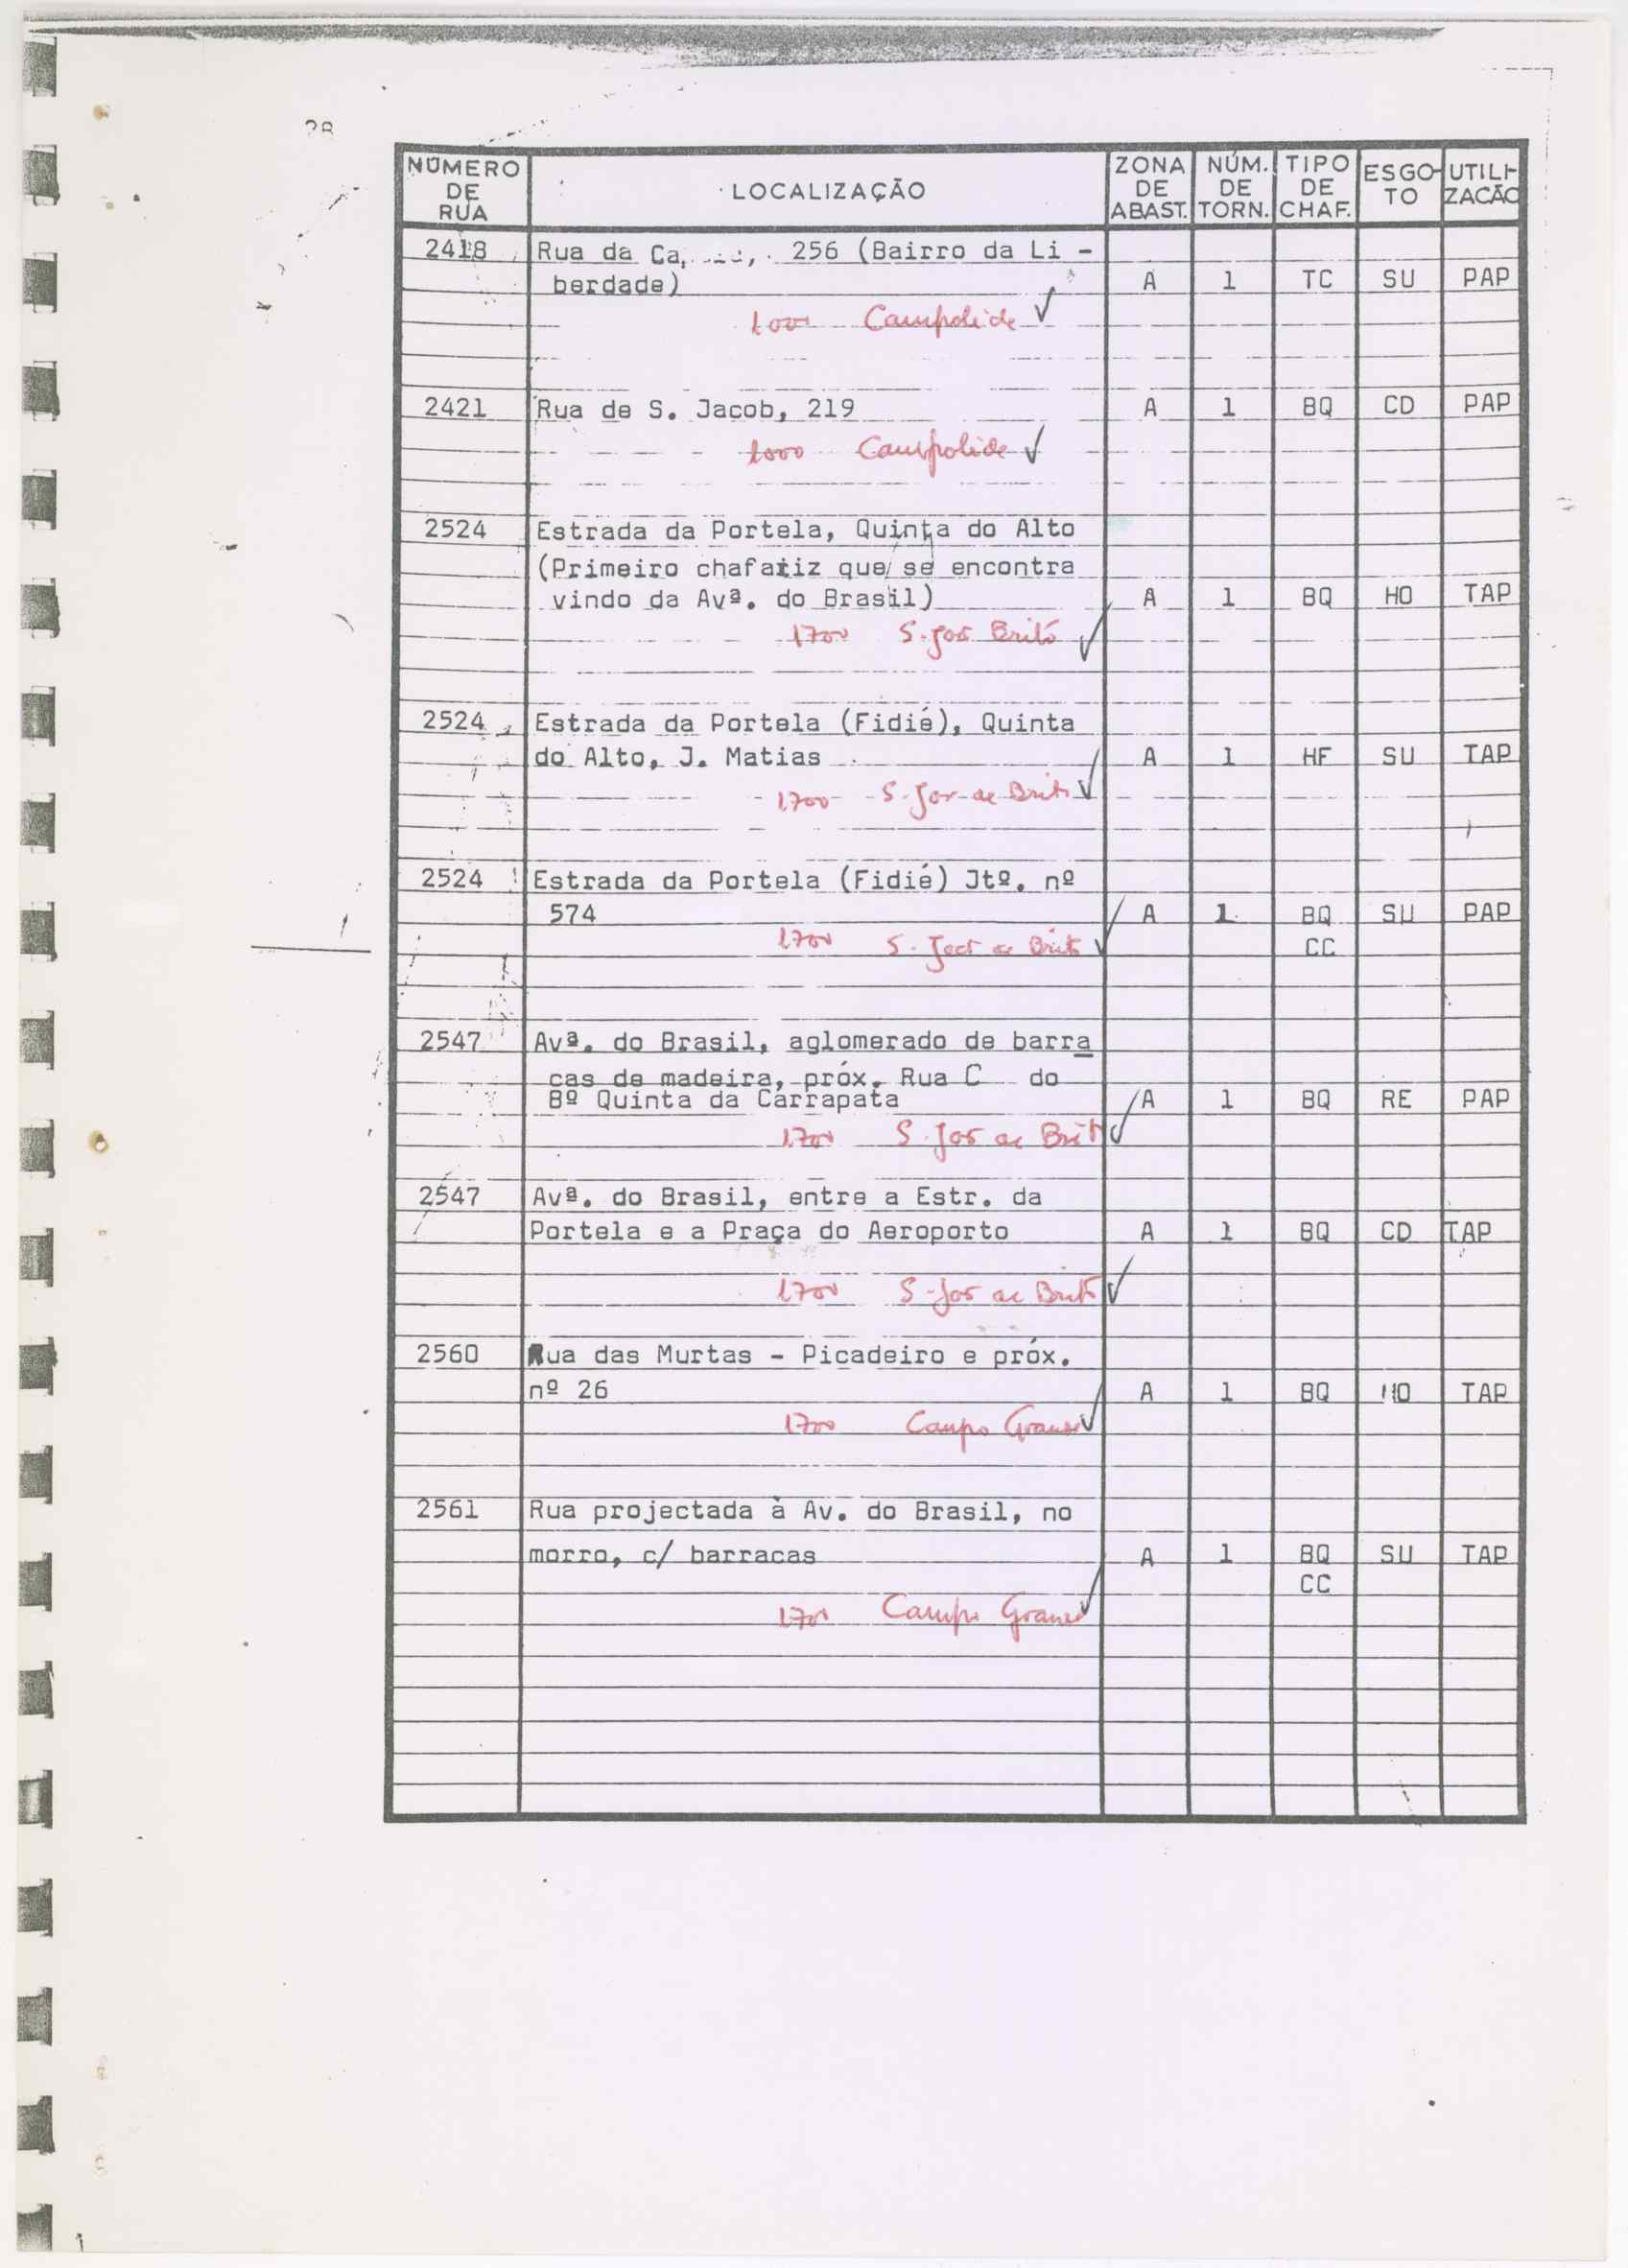 28
NÚMERO DE RUA LOCALIZAÇÃO ZONA DE ABAST. NÚM. DE TORN. TIPO DE CHAF. ESGOTO UTILIZACÃO
2418 Rua da 256 (Bairro da Li -
berdade) A 1 TC SU PAP
1000 Campolide ✓
2421 Rua de S. Jacob, 219 A 1 BQ CD PAP
1000 Campolide ✓
2524 Estrada da Portela, Quinta do Alto
(Primeiro chafariz que se encontra
vindo da Avª. do Brasil) A 1 BQ HO TAP
1700 S. João Brito ✓
2524 Estrada da Portela (Fidié), Quinta
do Alto, J. Matias A 1 HF SU TAP
1700 S. João de Brito ✓
2524 Estrada da Portela (Fidié) Jtº. nº
574 A 1 BQ SU PAP
CC
1700 S. João de Brito ✓
2547 Avª. do Brasil, aglomerado de barra
cas de madeira, próx. Rua C do
Bº Quinta da Carrapata A 1 BQ RE PAP
1700 S. João de Brito ✓
2547 Avª. do Brasil, entre a Estr. da
Portela e a Praça do Aeroporto A 1 BQ CD TAP
1700 S. João de Brito ✓
2560 Rua das Murtas - Picadeiro e próx.
nº 26 A 1 BQ HO TAP
1700 Campo Grande ✓
2561 Rua projectada à Av. do Brasil, no
morro, c/ barracas A 1 BQ SU TAP
CC
1700 Campo Grande ✓